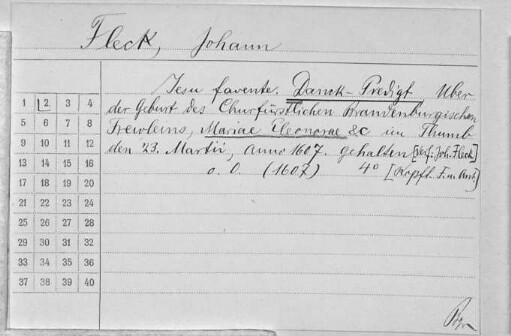 Fleck, Johann
Jesu favente. Danck-Predigt Uber
der Geburt des Churfürstlichen Brandenburgischen
Frewleins, Mariae Eleonorae &c im Thumb
den 23. Martii, Anno 1607. gehalten [Verf: Joh. Fleck]
o. O. (1607) 4° [Kopft. F. m.
1 2 3 4
5 6 7 8
9 10 11 12
13 14 15 16
17 18 19 20
21 22 23 24
25 26 27 28
29 30 31 32
33 34 35 36
37 38 39 40